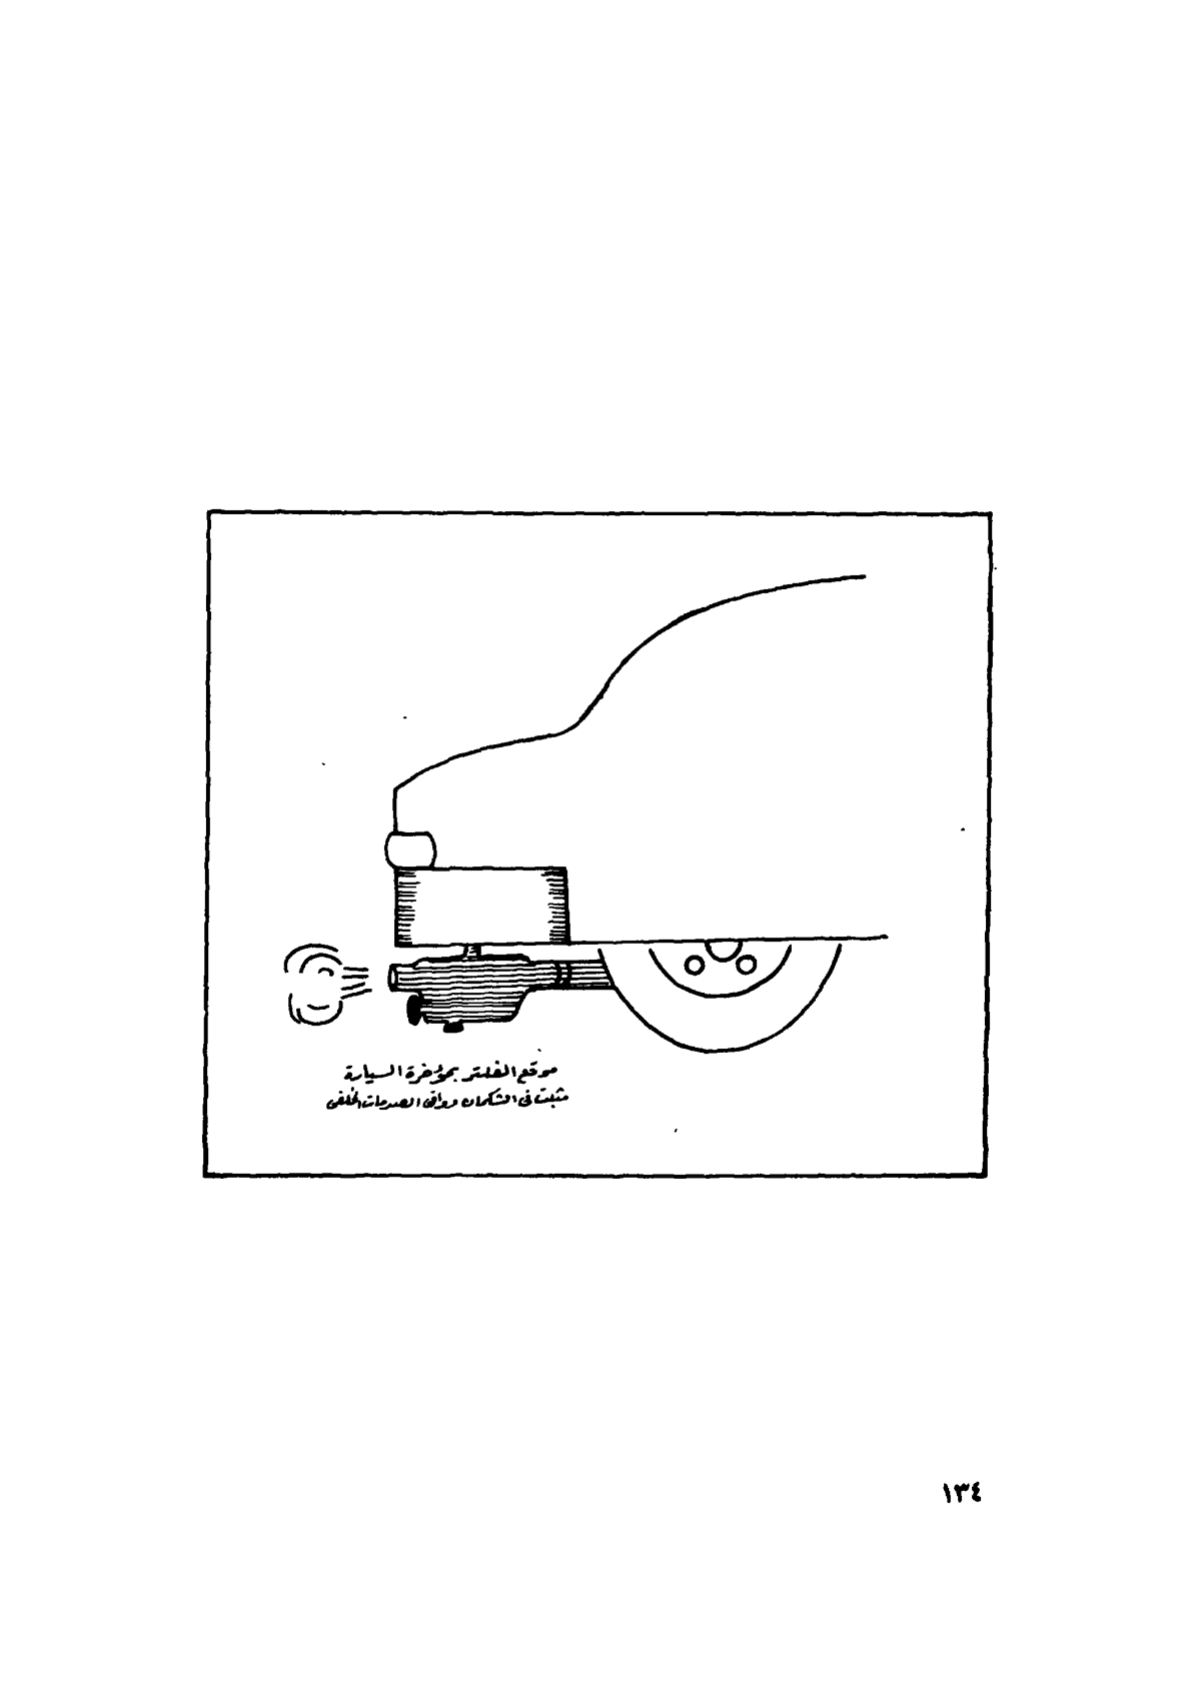 موقع الفلتر بمؤخرة السيارة
مثبت فى الشكمان وواقى الصدمات الخلفى
١٣٤